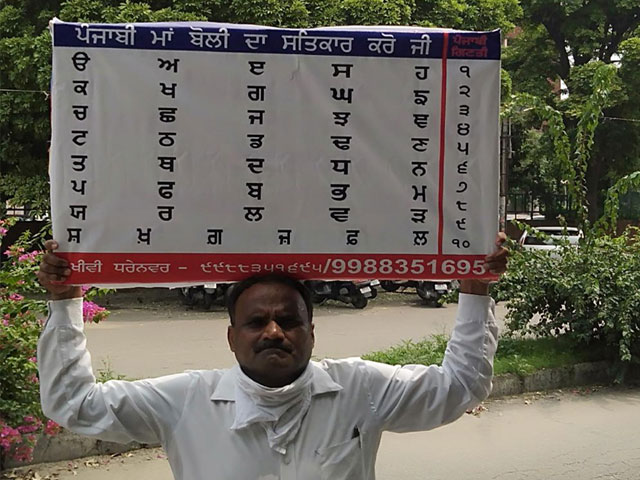 ਪੰਜਾਬੀ ਮਾਂ ਬੋਲੀ ਦਾ ਸਤਿਕਾਰ ਕਰੋ ਜੀ
ਪੰਜਾਬੀ
ਗਿਣਤੀ
ੳ ਅ ੲ ਸ ਹ ੧
ਕ ਖ ਗ ਘ ਙ ੨
ਚ ਛ ਜ ਝ ਞ ੩
ਟ ਠ ਡ ਢ ਣ ੪
ਤ ਥ ਦ ਧ ਨ ੫
ਪ ਫ ਬ ਭ ਮ ੬
ਯ ਰ ਲ ਵ ੜ ੭
ਸ਼ ਖ਼ ਗ਼ ਜ਼ ਫ਼ ਲ਼ ੮
੯
੧੦
ਧਰੇਨਵਰ - ੯੯੮੮੩੫੧੬੯੫/9988351695